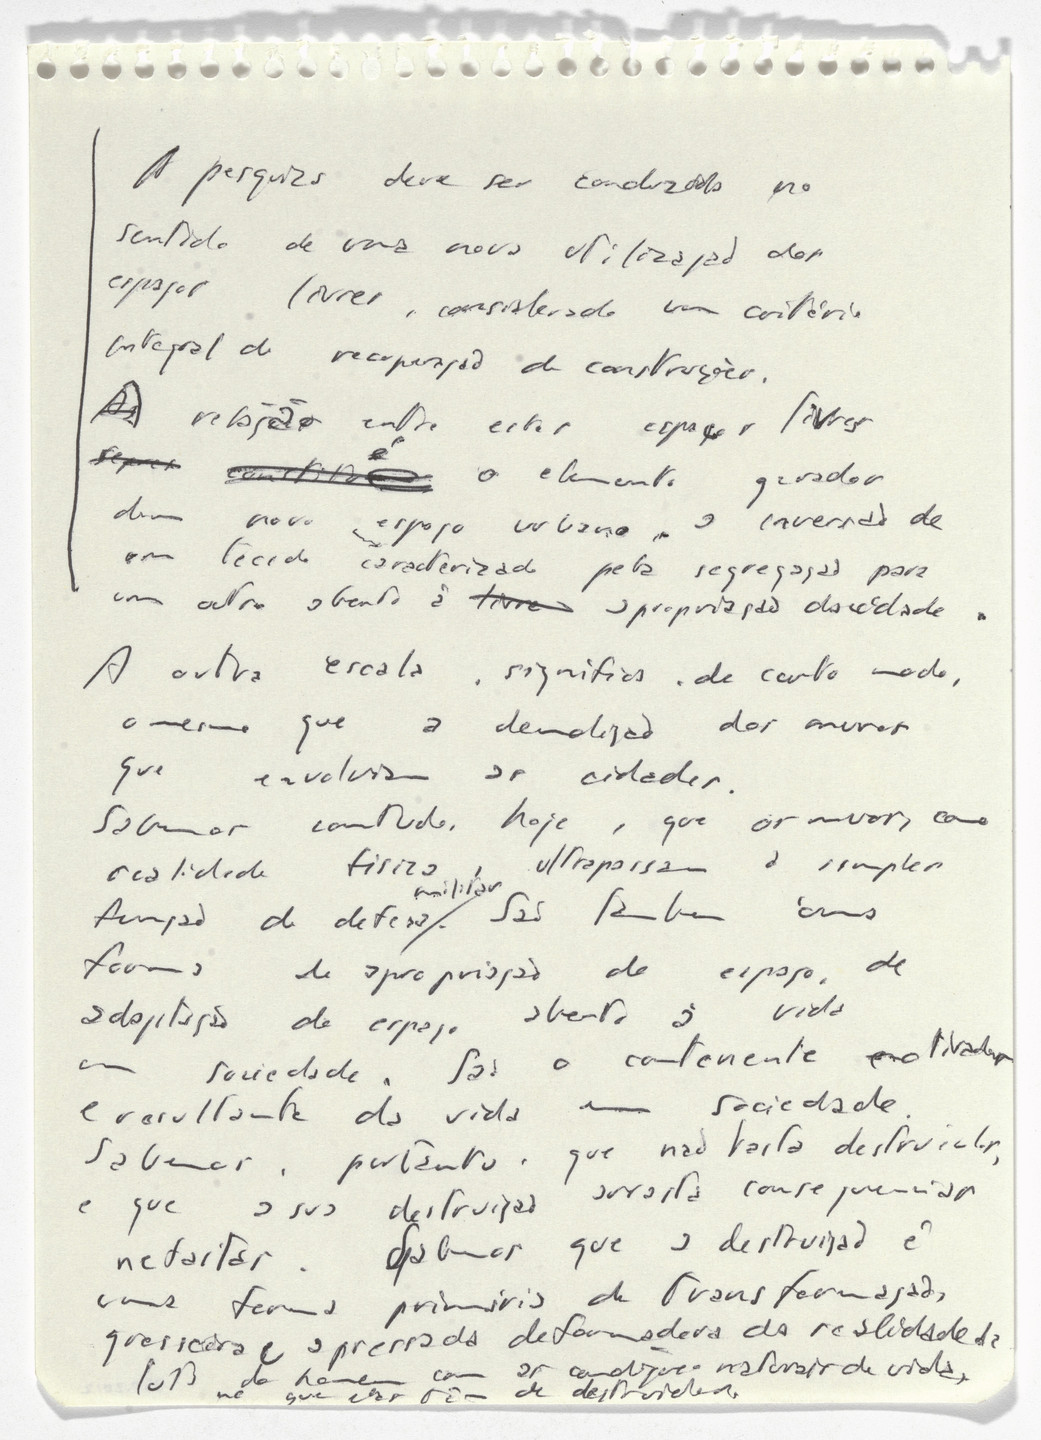 A pesquiza deve ser conduzida no
sentido de uma nova utilização dos
espaços livres, considerado um critério
integral de recuperação de construções.
A relação entre estes espaços livres
é o elemento gerador
dum novo espaço urbano, a inversão de
um tecido caracterizado pela segregação para
um outro aberto à apropriação da cidade.
A outra escala, significa, de certo modo,
o mesmo que a demolição dos muros
que envolviam as cidades.
Sabemos contudo, hoje, que os muros, como
realidade física, ultrapassam a simples
função de defesa militar. São também uma
forma de apropriação do espaço, de
adaptação do espaço aberto à vida
em sociedade. São o continente
e resultante da vida em sociedade.
Sabemos, portanto, que não basta destruí-los,
e que a sua destruição arrasta consequencias
nefastas. Sabemos que a destruição é
uma forma primária de transformação,
grosseira e apressada deformadora da realidade da
luta do homem com as condições naturais de vida,
no que elas têm de destruidor.